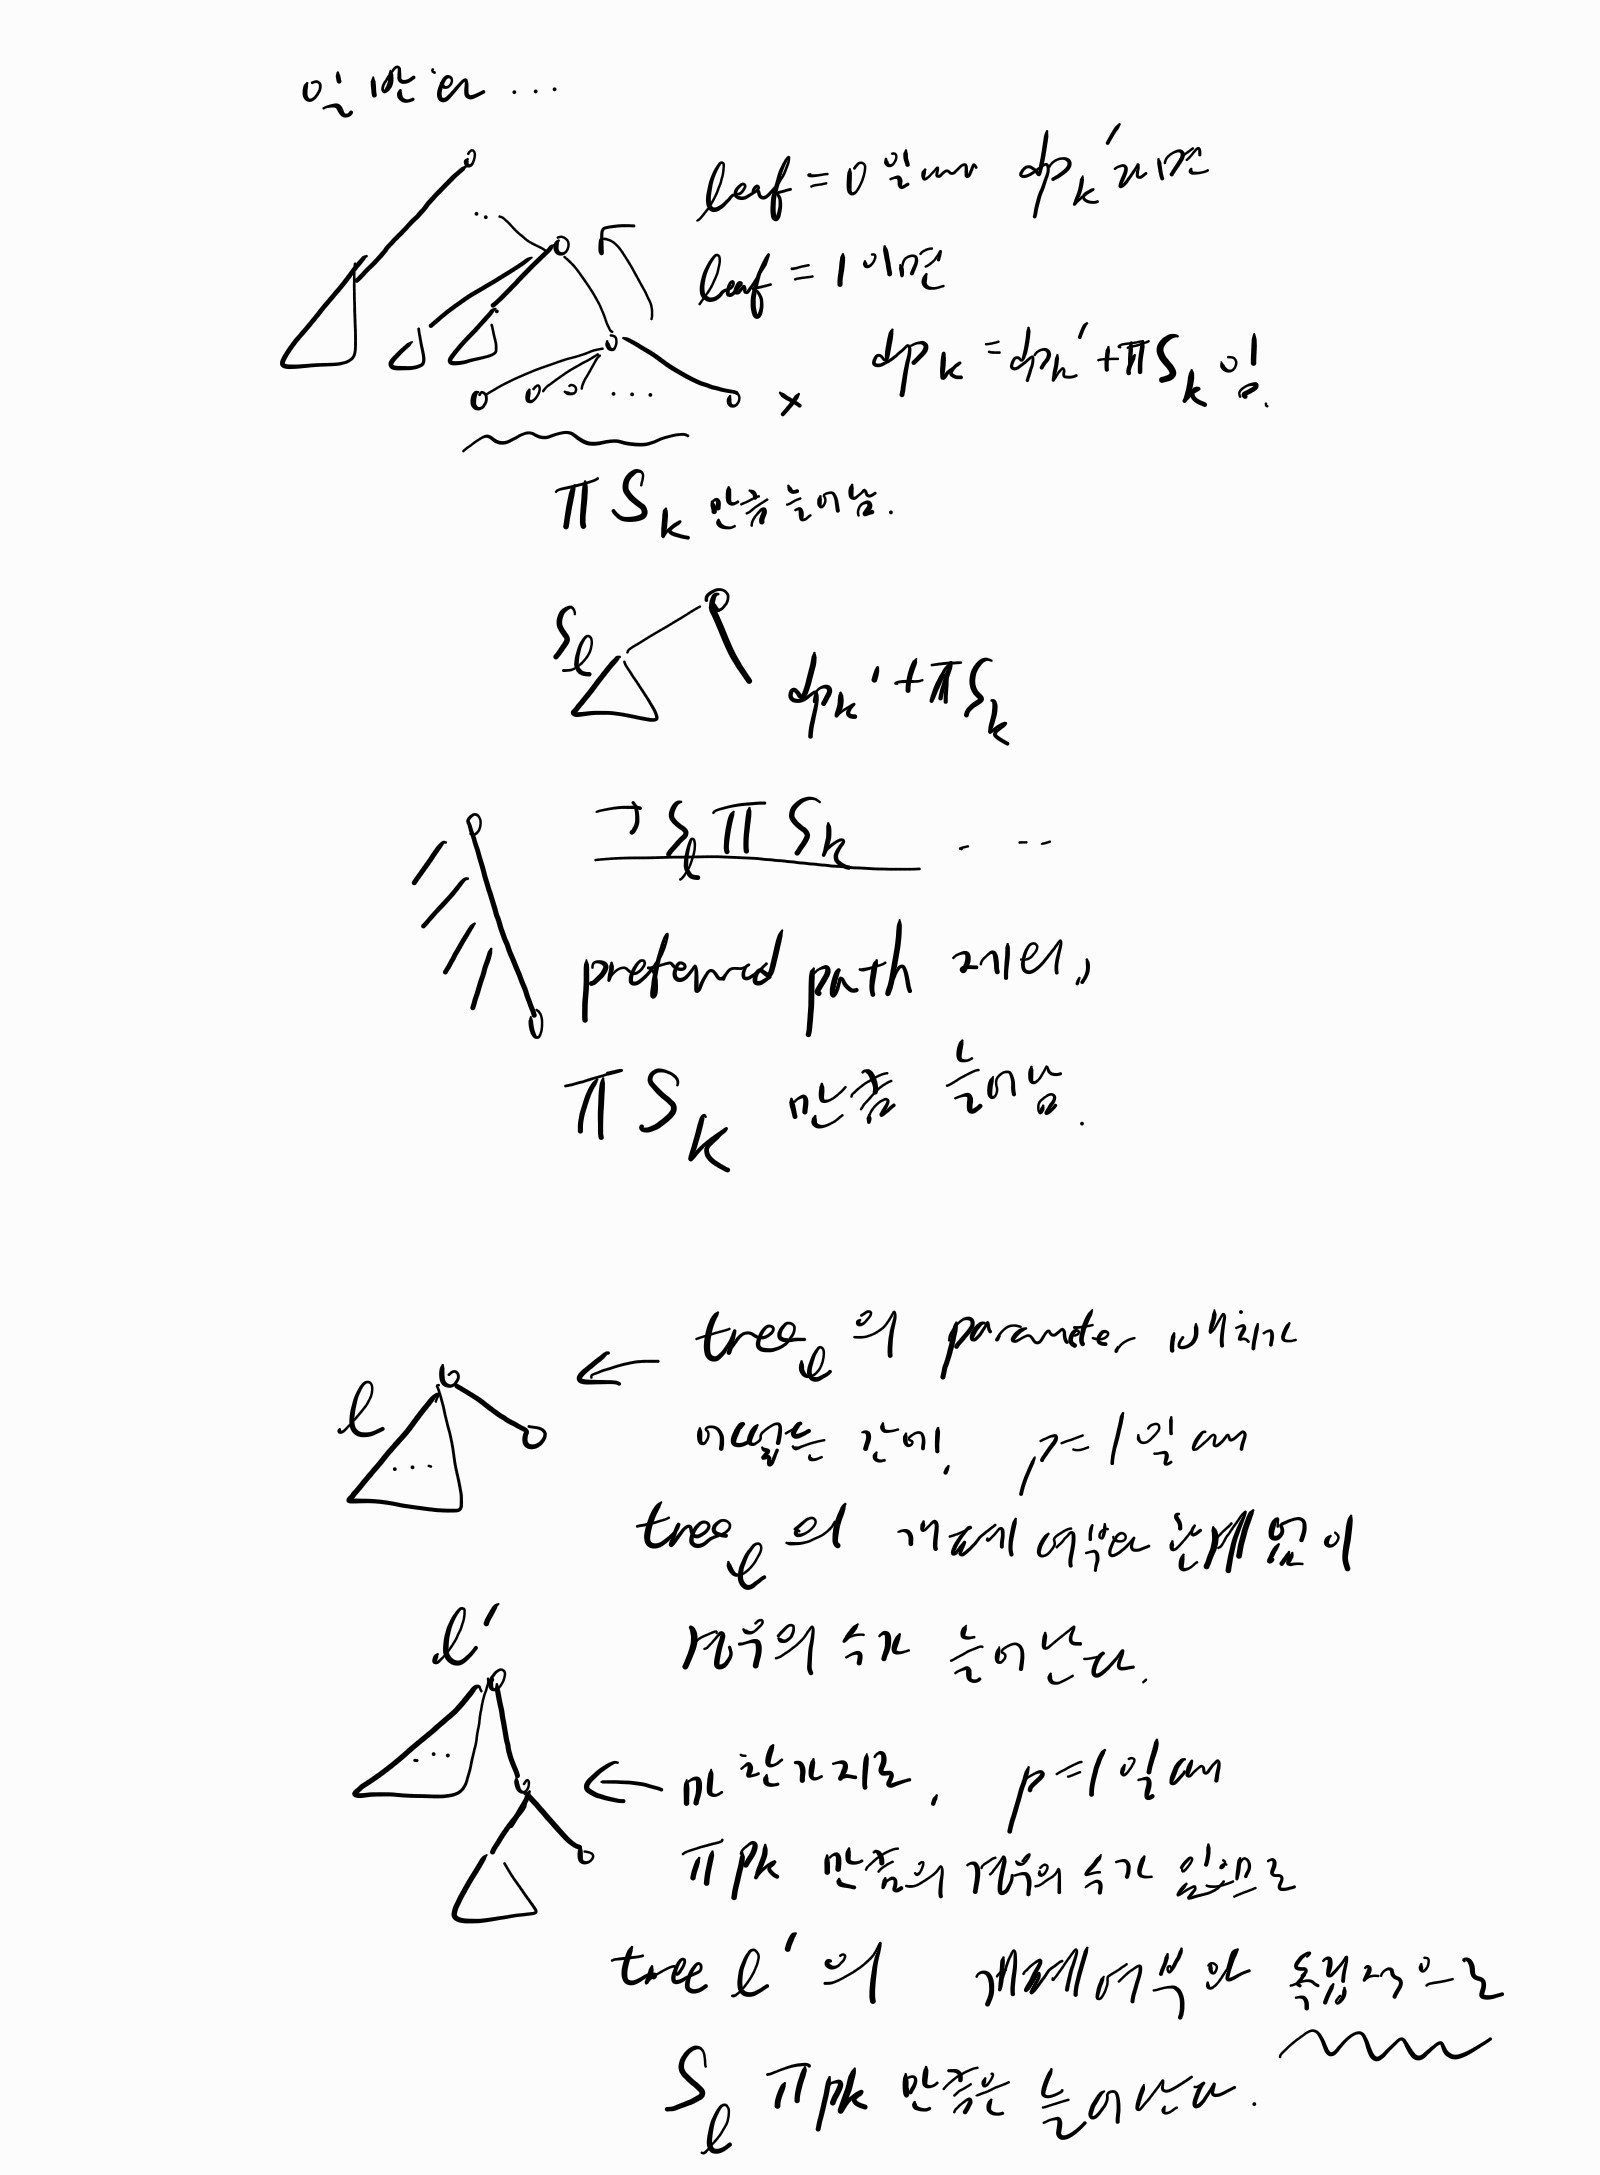 일반화 ...
leaf = 0 일때 dp_k' 라면
leaf = 1 이면
dp_k = dp_k' + π S_k 임.
x
π S_k 만큼 늘어남.
S_l
dp_k' + π S_k
→ S_l π S_k ...
preferred path 제외,
π S_k 만큼 늘어남.
l
← tree_l 의 parameter
어떻든 간에, p=1 일때
tree_l 의 개폐 여부와 관계 없이
경우의 수가 늘어난다.
l'
← 마찬가지로, p=1 일때
π pk 만큼의 경우의 수가 있으므로
tree l' 의 개폐여부와 독립적으로
S_l π pk 만큼은 늘어난다.